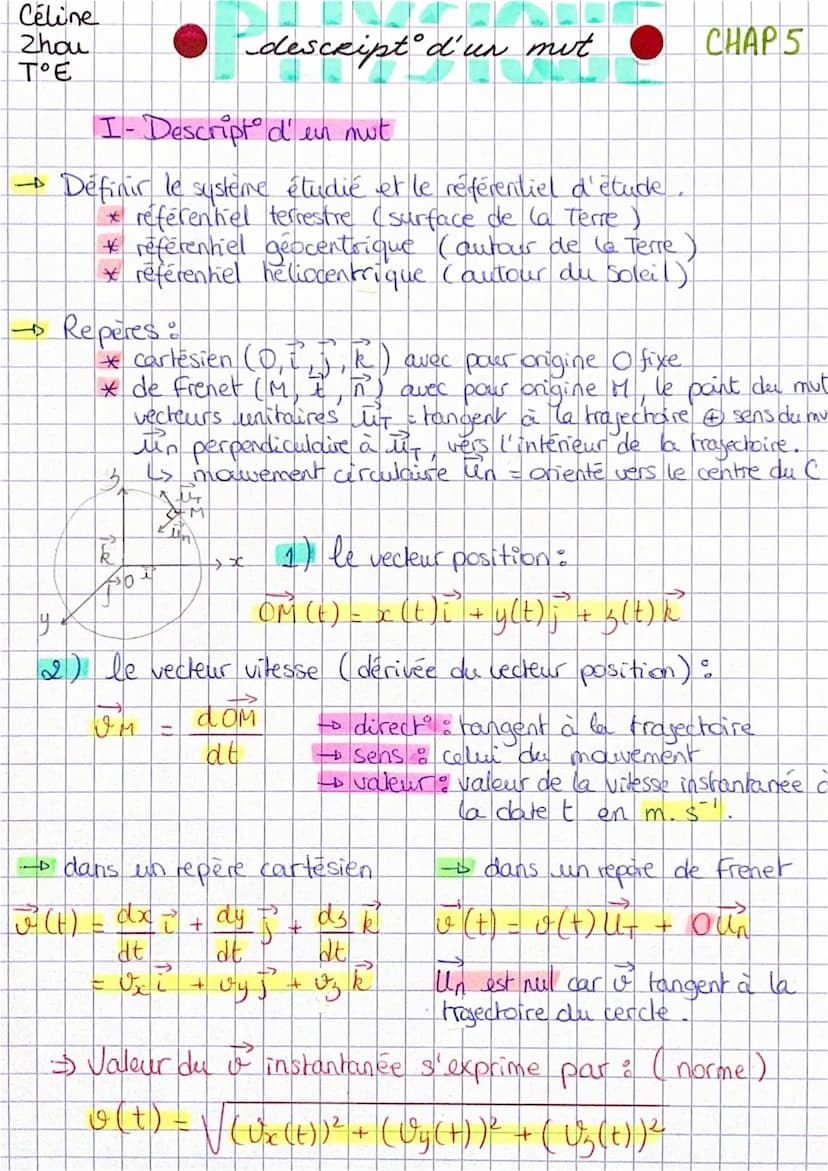 Céline
Zhou
T°E
PHYSIQUE
descript° d'un mvt
CHAP 5
I - Descript° d'un mvt
→ Définir le système étudié et le référentiel d'étude.
* référentiel terrestre (surface de la Terre)
* référentiel géocentrique (autour de la Terre)
* référentiel héliocentrique (autour du Soleil)
→ Repères :
* cartésien (O, i⃗, j⃗, k⃗) avec pour origine O fixe
* de Frenet (M, t⃗, n⃗) avec pour origine M, le point du mvt
vecteurs unitaires u⃗T = tangent à la trajectoire ⊕ sens du mv
u⃗n perpendiculaire à u⃗T, vers l'intérieur de la trajectoire.
↳ mouvement circulaire u⃗n = orienté vers le centre du C
z
u⃗T
M
u⃗n
k⃗
x
O
i⃗
j⃗
y
1) le vecteur position :
OM⃗(t) = x(t)i⃗ + y(t)j⃗ + z(t)k⃗
2) le vecteur vitesse (dérivée du vecteur position) :
v⃗M = dOM⃗/dt
→ direct° : tangent à la trajectoire
→ sens : celui du mouvement
→ valeur : valeur de la vitesse instantanée à
la date t en m.s⁻¹.
→ dans un repère cartésien
v⃗(t) = dx/dt i⃗ + dy/dt j⃗ + dz/dt k⃗
= vx i⃗ + vy j⃗ + vz k⃗
→ dans un repère de Frenet
v⃗(t) = v(t)u⃗T + 0u⃗n
u⃗n est nul car v⃗ tangent à la
trajectoire du cercle.
⇒ Valeur du v⃗ instantanée s'exprime par : (norme)
v(t) = √((vx(t))² + (vy(t))² + (vz(t))²